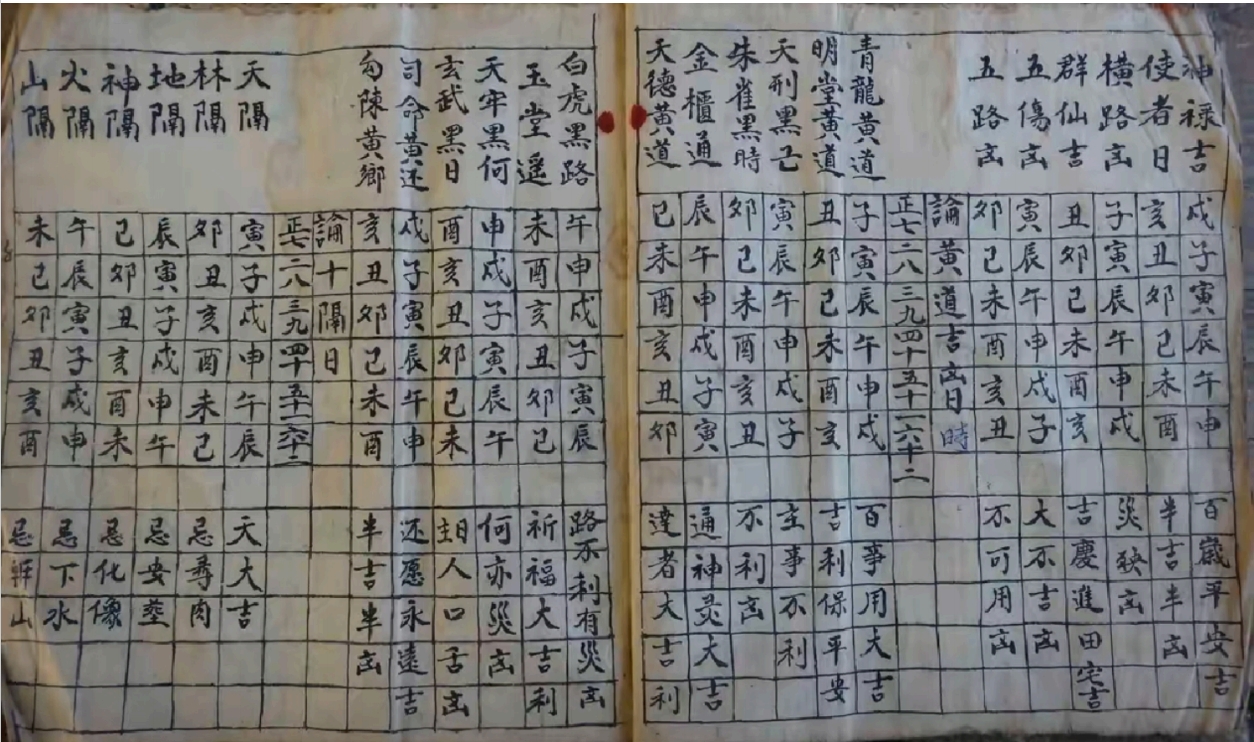 神禄吉 戌子寅辰午申 百歲平安吉
使者日 亥丑卯巳未酉 半吉半凶
橫路凶 子寅辰午申戌 災殃凶
群仙吉 丑卯巳未酉亥 吉慶進田宅吉
五傷凶 寅辰午申戌子 大不吉凶
五路凶 卯巳未酉亥丑 不可用凶
論黃道吉凶日時
正七二八三九四十五十一六十二
青龍黃道 子寅辰午申戌 百事用大吉
明堂黃道 丑卯巳未酉亥 吉利保平安
天刑黑己 寅辰午申戌子 主事不利
朱雀黑時 卯巳未酉亥丑 不利凶
金櫃通 辰午申戌子寅 通神灵大吉
天德黃道 巳未酉亥丑卯 達者大吉利
白虎黑路 午申戌子寅辰 路不利有災凶
玉堂遥 未酉亥丑卯巳 祈福大吉利
天牢黑何 申戌子寅辰午 何亦災凶
玄武黑日 酉亥丑卯巳未 人口舌凶
司命黃还 戌子寅辰午申 还愿永遠吉
勾陳黃鄉 亥丑卯巳未酉 半吉半凶
論十隔日
正七二八三九四十五十一六十二
天隔 寅子戌申午辰 天大吉
林隔 卯丑亥酉未巳 忌尋肉
地隔 辰寅子戌申午 忌安葬
神隔 巳卯丑亥酉未 忌化像
火隔 午辰寅子戌申 忌下水
山隔 未巳卯丑亥酉 忌山